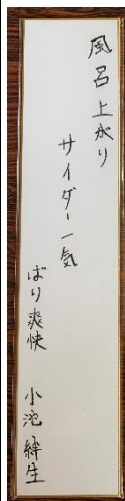 風呂上がり
サイダー一気
ばり爽快
小池絆生